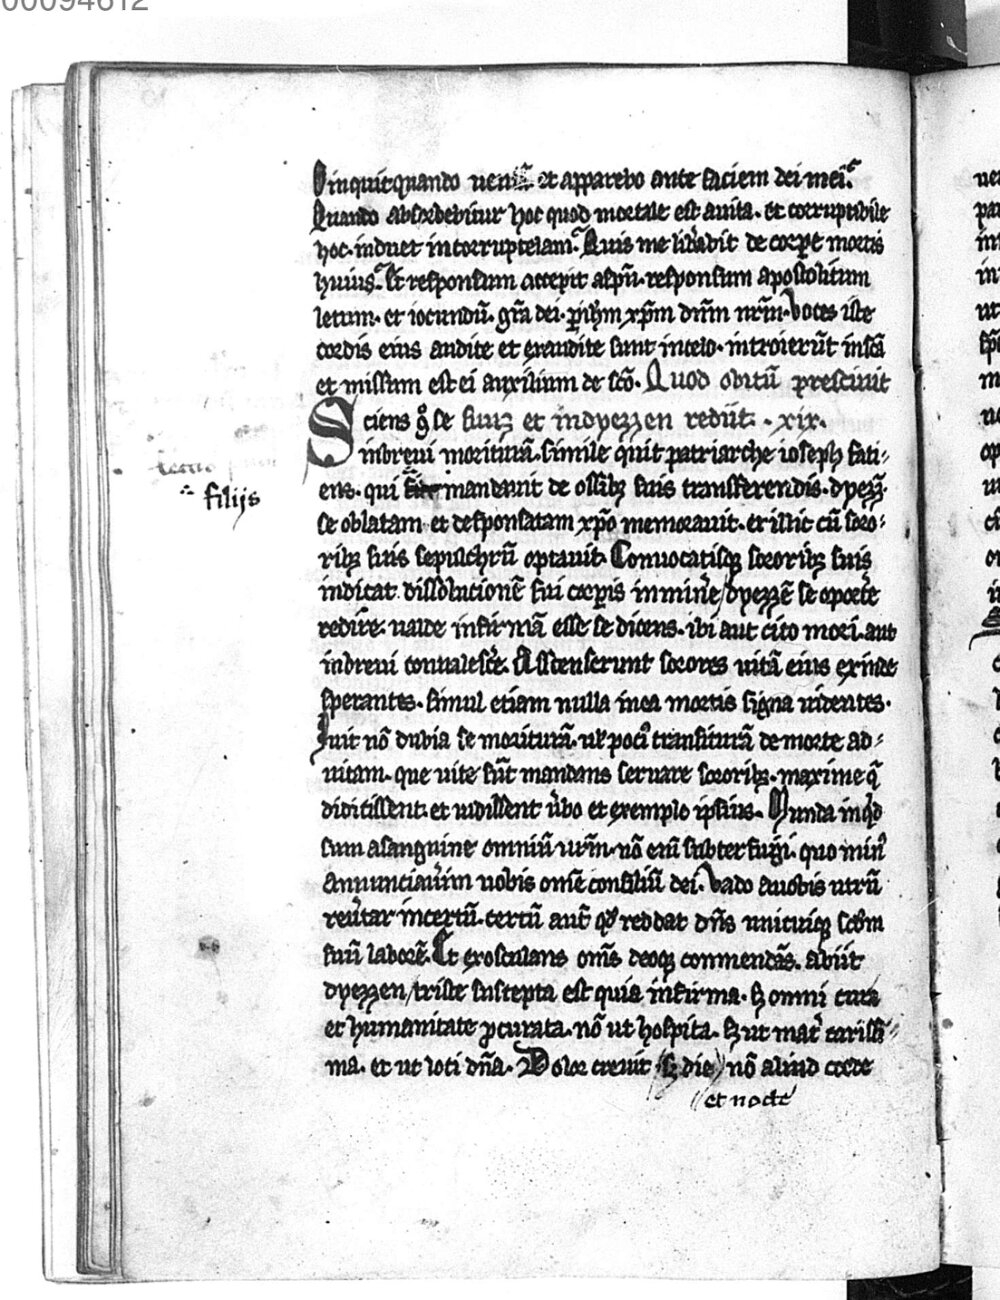 00094612
O inquit quando ueniā et apparebo ante faciem dei mei.
Quando absorbebitur hoc quod mortale est auita. et corruptibile
hoc. induet incorruptelam. Quis me libabit de corpe mortis
huius. Et responsum accepit aspū. responsum apostolicum
letum. et iocundū. gr̄a dei. p ih̄m xp̄m dn̄m nr̄m. Voces iste
cordis eius audite et exaudite sunt incelo. introierūt insc̄a
et missum est ei auxilium de sc̄o. Quod obitū presciuit
Sciens g̊ se suiʒ et indyezzen rediit. xix.
inbreui moriturā. simile quit patriarche ioseph faci-
ens. qui mandauit de ossibʒ suis transferendis. dyezz̄.
filijs
se oblatam et desponsatam xp̄o memorauit. et illic cū soro-
ribʒ suis sepulchrū optauit. Conuocatisqʒ sororibʒ suis
indicat dissolutionē sui corpis inminere / dyezzē se oporte
redire. ualde infirmā esse se dicens. ibi aut cito mori. aut
inbreui conualesce. Assenserunt sorores uitā eius exinde
sperantes. simul etiam nulla inea mortis signa uidentes.
Iuit nō dubia se moriturā. ul pocī transiturā de morte ad-
uitam. que uite sūt mandans seruare sororibʒ. maxime q̄
didicissent. et uidissent ūbo et exemplo ipsius. Munda inqd
sum asanguine omniū urm̄. nō enī subterfugi. quo minꝰ
annunciauim uobis omē consiliū dei. Vado auobis utrū
reuʼtar incertū. certū aut̄ qd reddat dn̄s unicuiqʒ scd̄m
suū laborē. Et exosculans om̄s deoqʒ commendās. abiit
dyezzen / triste suscepta est quia infirma. sʒ omni cura
et humanitate pcurata. nō ut hospita. sʒ ut mat̓ carissi-
ma. et ut loci dn̄a. Dolor creuit sʒ die nō aliud crede
et nocte